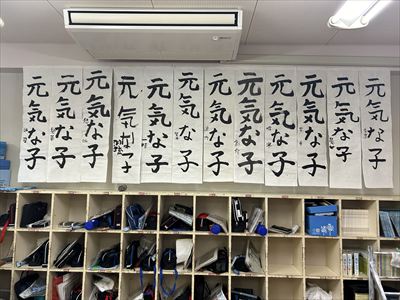 元気な子
元気な子
元気な子
元気な子
元気な子
元気な子
元気な子
元気な子
元気な子
元気な子
元気な子
元気な子